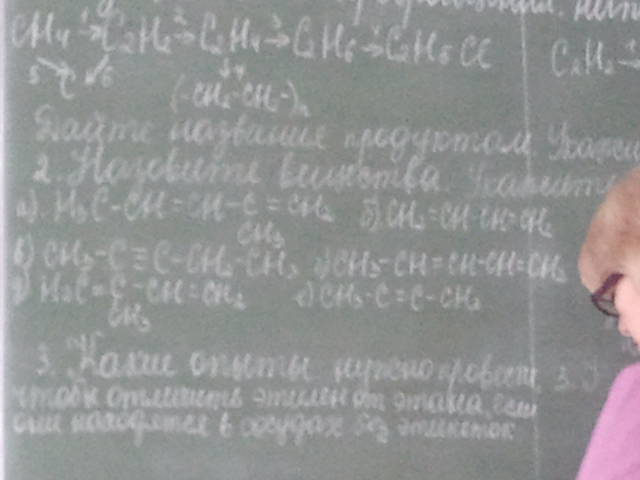 CH₄ →¹ C₂H₂ →² C₂H₄ →³ C₂H₆ → C₂H₅Cl
5 C 6 ↓4
(-CH₂-CH₂-)n
Дайте название продуктам. Укажи
2. Назовите вещества. Укажите
а). H₃C-CH=CH-C=CH₂ б) CH₂=CH-CH=CH₂
CH₃
в) CH₃-C≡C-CH₂-CH₃ г) CH₃-CH=CH-CH=CH₂
д) H₂C=C-CH=CH₂ е) CH₃-C=C-CH₃
CH₃
3. Какие опыты нужно провести, 3.
чтобы отличить этилен от этана, если
они находятся в сосудах без этикеток
C₂H₂